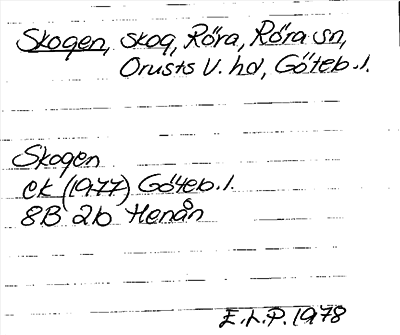 Skogen, skog, Röra, Röra sn,
Orusts V. hd, Göteb. l.
Skogen
ek (1977) Göteb. l.
8B 2b Henån
E.L.P. 1978